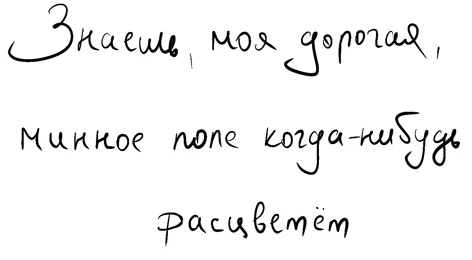 Знаешь, моя дорогая,
минное поле когда-нибудь
расцветёт